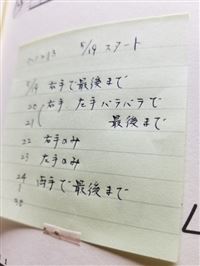 5/19 スタート
5/19 右手で最後まで
20 右手 左手バラバラで
21 最後まで
22 右手のみ
23 左手のみ
24 両手で最後まで